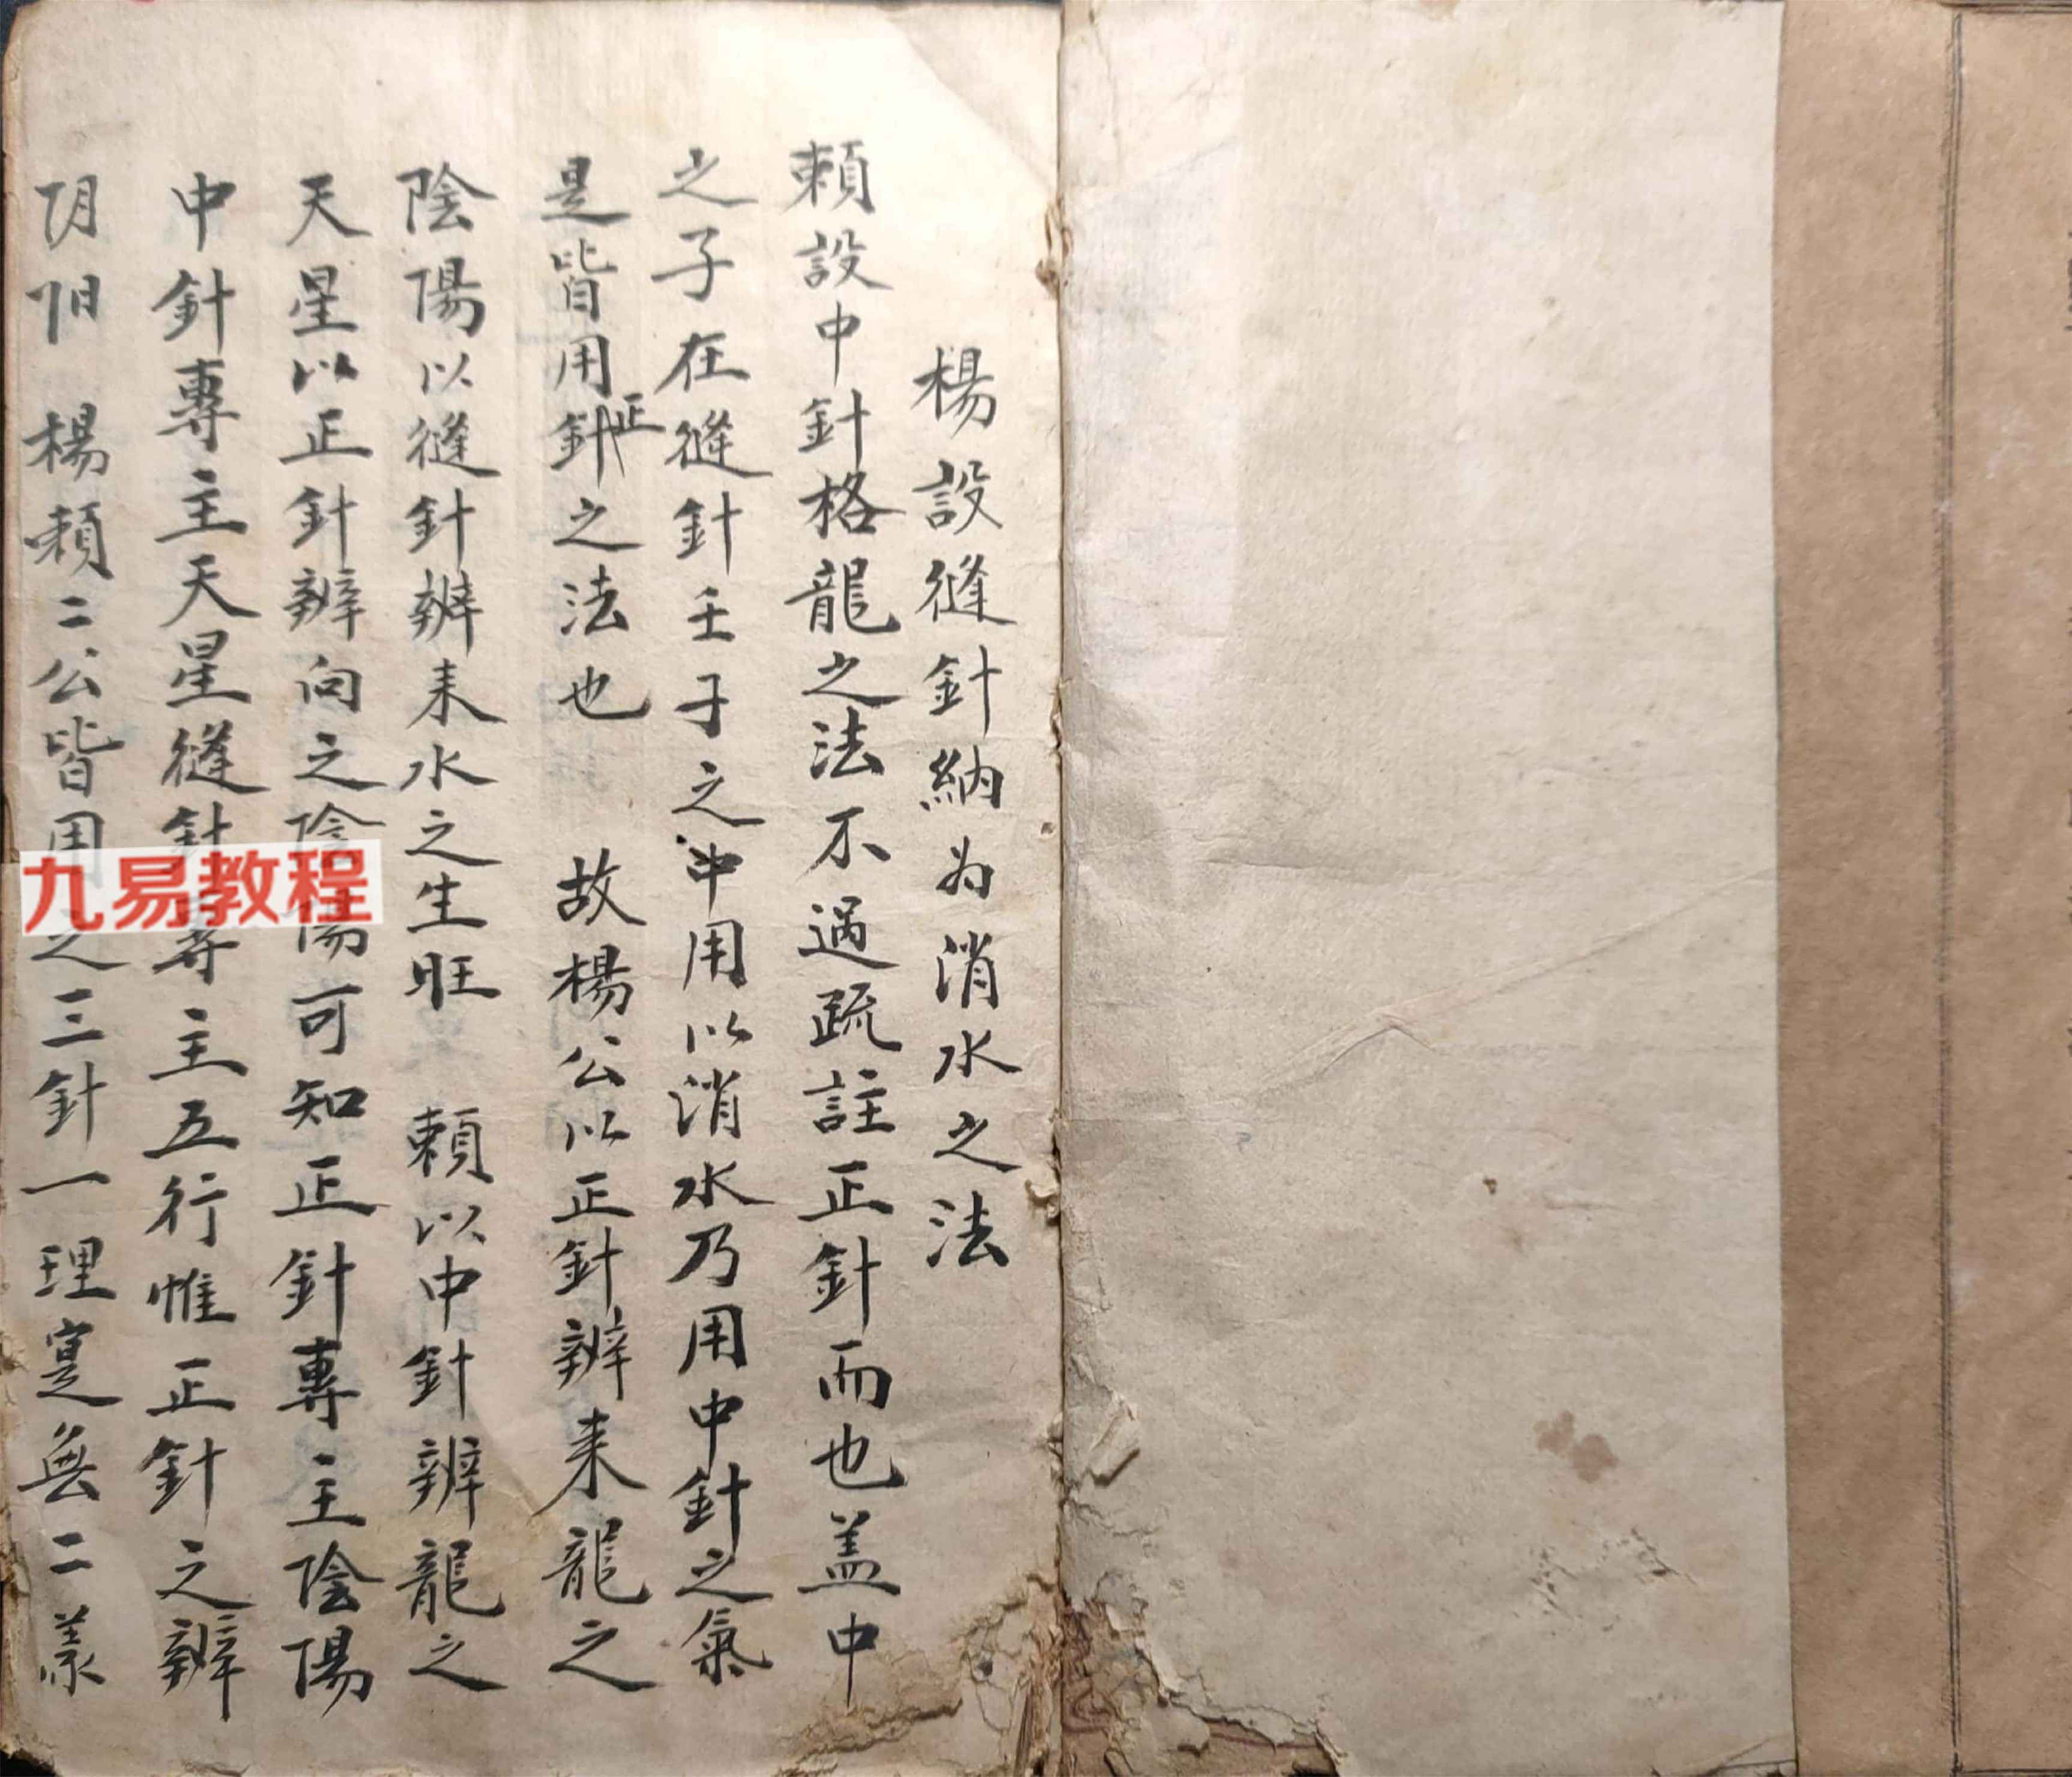 楊設縫針納为消水之法
頼設中針格龍之法不過疏註正針而也盖中
之子在縫針壬子之中用以消水乃用中針之氣
是皆用正針之法也 故楊公以正針辨来龍之
陰陽以縫針辨来水之生旺 頼以中針辨龍之
天星以正針辨向之陰陽可知正針專主陰陽
中針專主天星縫針專主五行惟正針之辨
阴阳楊頼二公皆用之三針一理寔無二義
九易教程